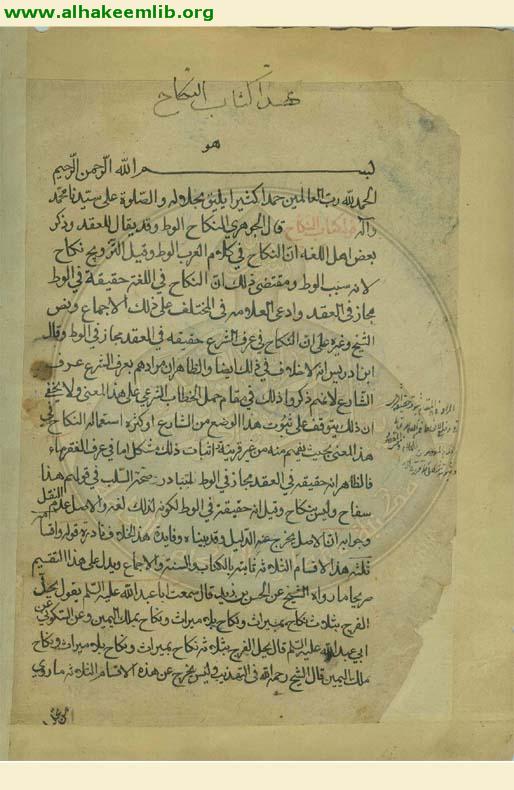 www.alhakeemlib.org
هذا كتاب النكاح
هو
بسم الله الرحمن الرحيم
الحمد لله رب العالمين حمدا كثيرا يليق بجلاله والصلوة على سيدنا محمد
وآله كتاب النكاح قال الجوهري النكاح الوطى وقد يقال للعقد وذكر
بعض اهل اللغة ان النكاح في كلام العرب الوطى وقيل التزويج نكاح
لانه سبب الوطى ومقتضى ذلك ان النكاح في اللغة حقيقة في الوطى
مجاز في العقد وادعى العلامه في المختلف على ذلك الاجماع ونص
الشيخ وغيره على ان النكاح في عرف الشرع حقيقه في العقد مجاز في الوطى وقال
ابن ادريس انه لا خلاف في ذلك ايضا والظاهر ان مرادهم بعرف الشرع عرف
الشارع لانهم ذكروا ذلك في مقام حمل الخطاب الشرعي على هذا المعنى ولا يخفى
ان ذلك يتوقف على ثبوت هذا الوضع من الشارع او كثرة استعماله النكاح في
هذا المعنى بحيث يفهم منه من غير قرينة اثبات ذلك مشكل اما في عرف الفقهاء
فالظاهر انه حقيقه في العقد مجاز في الوطى للتبادر وصحة السلب في قولهم هذا
سفاح وليس بنكاح وقيل انه حقيقة في الوطى لكونه كذلك لغة والاصل عدم النقل
وجوابه ان الاصل يخرج عنه الدليل وقد بيناه وفايدة هذا الخلاف نادرة قوله واقسامه
ثلثه هذا الاقسام الثلاثه ثابته بالكتاب والسنة والاجماع ويدل على هذا التقسيم
صريحا ما رواه الشيخ عن الحسن بن زيد قال سمعت ابا عبد الله عليه السلم يقول يحل
الفرج بثلاث نكاح بميراث ونكاح بلا ميراث ونكاح بملك اليمين وعن السكوني عن
ابي عبد الله عليه السلم قال يحل الفرج بثلاثه نكاح بميراث ونكاح بلا ميراث ونكاح
ملك اليمين قال الشيخ رحمه الله في التهذيب وليس يخرج عن هذه الاقسام الثلاثه ما روي